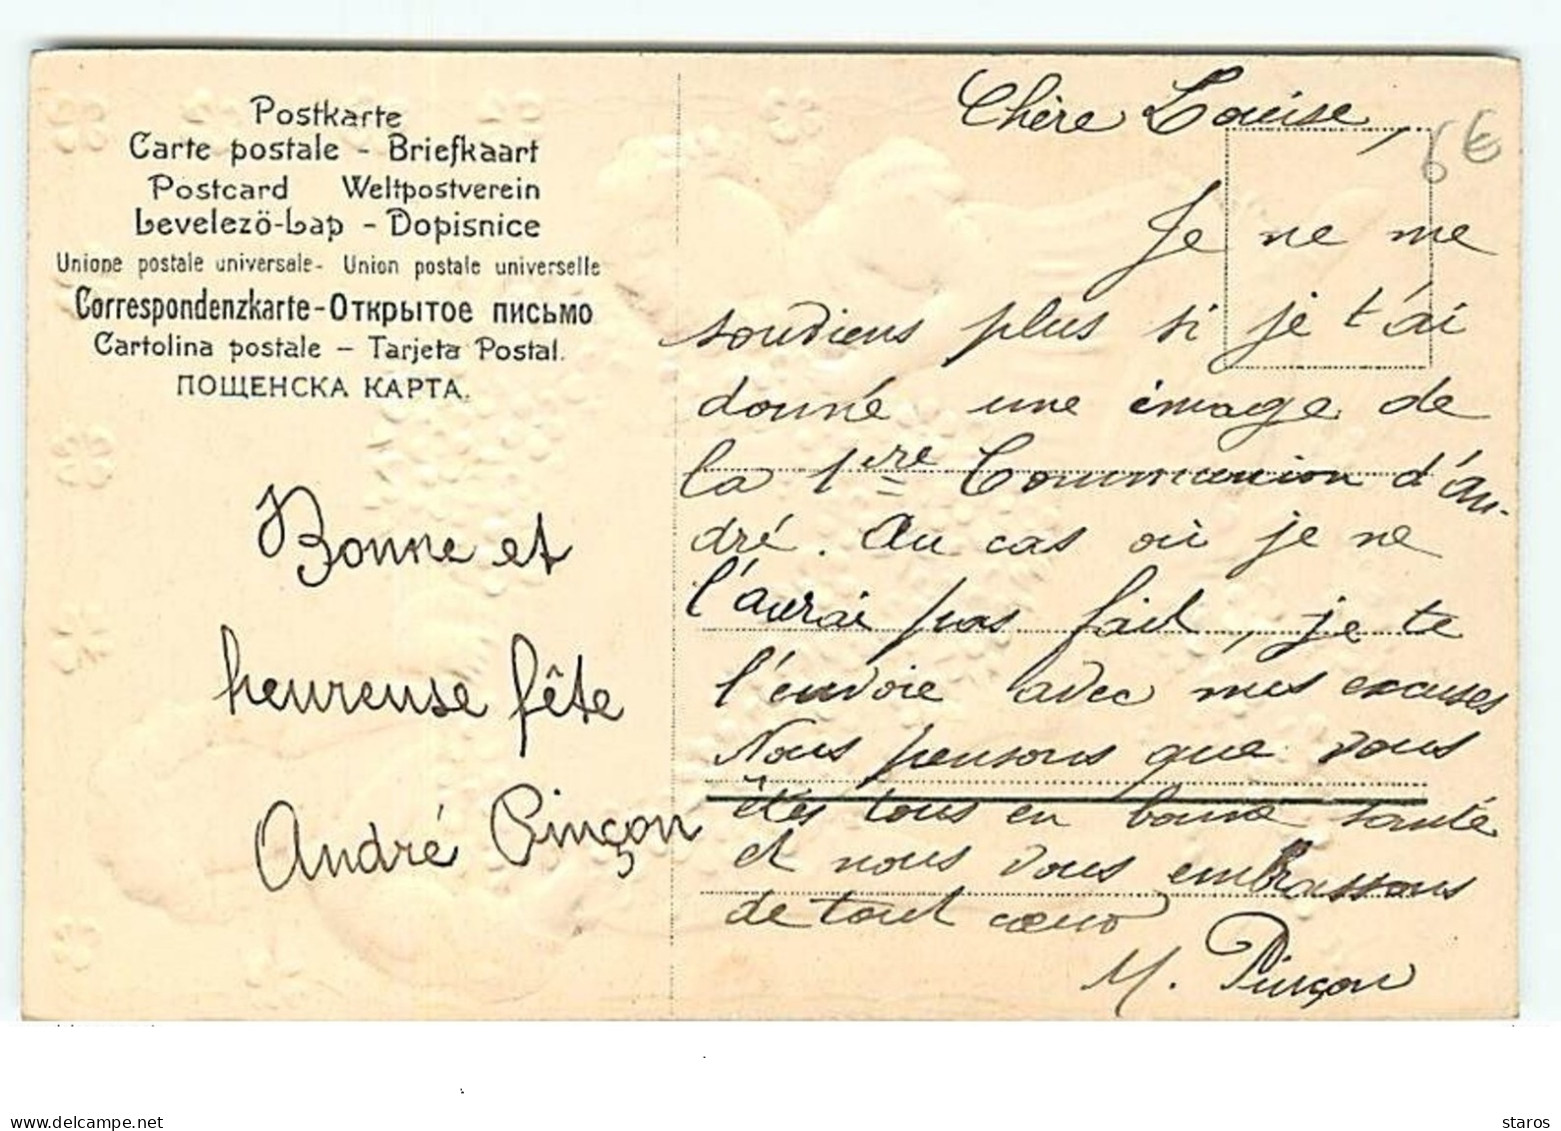 Postkarte
Carte postale - Briefkaart
Postcard Weltpostverein
Levelezö-Lap - Dopisnice
Unione postale universale - Union postale universelle
Correspondenzkarte - Открытое письмо
Cartolina postale - Tarjeta Postal.
ПОЩЕНСКА КАРТА.
Bonne et
heureuse fête
André Pinçon
6€
Chère Louise,
Je ne me
souviens plus si je t'ai
donné une image de
la 1ère Communion d'An-
dré. Au cas où je ne
l'aurai pas fait, je te
l'envoie avec mes excuses
Nous pensons que vous
êtes tous en bonne santé
et nous vous embrassons
de tout cœur
M. Pinçon
my-trading-card.net
staros